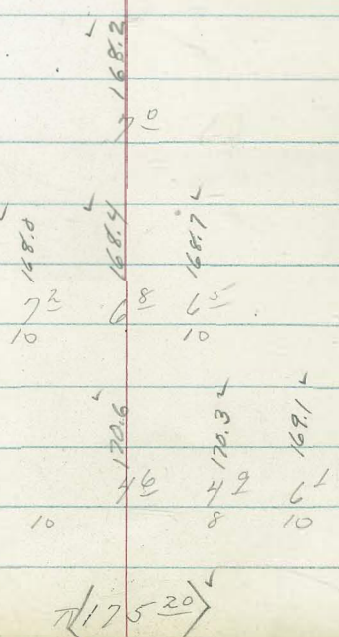 168.2
7 0
168.0 168.4 168.7
7 2 6 8 6 5
10 10
170.6 170.3 169.1
4 6 4 9 6 1
10 8 10
π 175 20